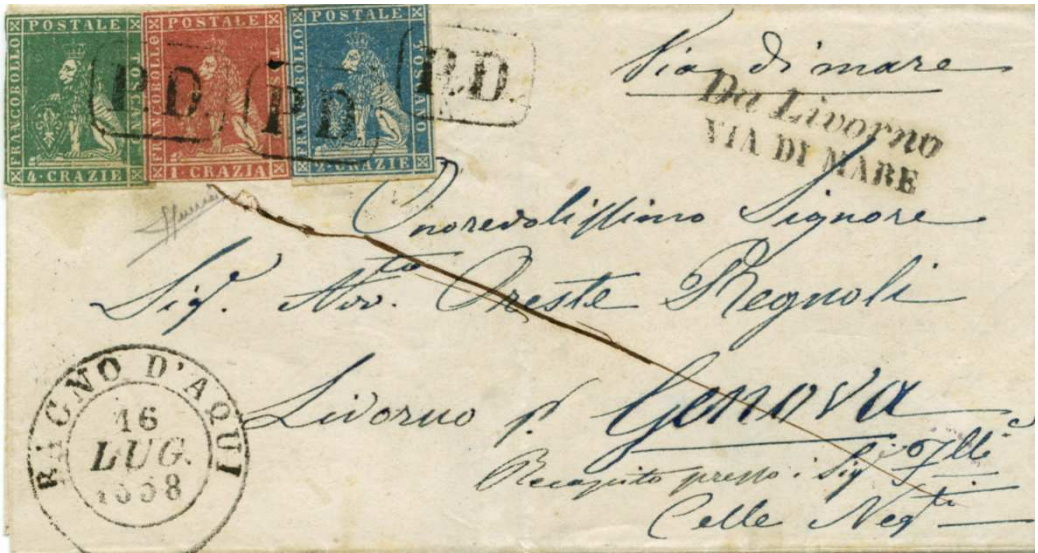 POSTALE
FRANCOBOLLO
TOSCANO
4·CRAZIE
POSTALE
FRANCOBOLLO
TOSCANO
1·CRAZIA
POSTALE
FRANCOBOLLO
TOSCANO
2·CRAZIE
P.D.
P.D.
P.D.
Via di mare
Da Livorno
VIA DI MARE
Onorevolissimo Signore
Sigr. Avv.to Oreste Regnoli
Livorno pr Genova
Recapito presso i Sigi Flli
Celle Negti
BAGNO D'AQUI
16
LUG.
1858